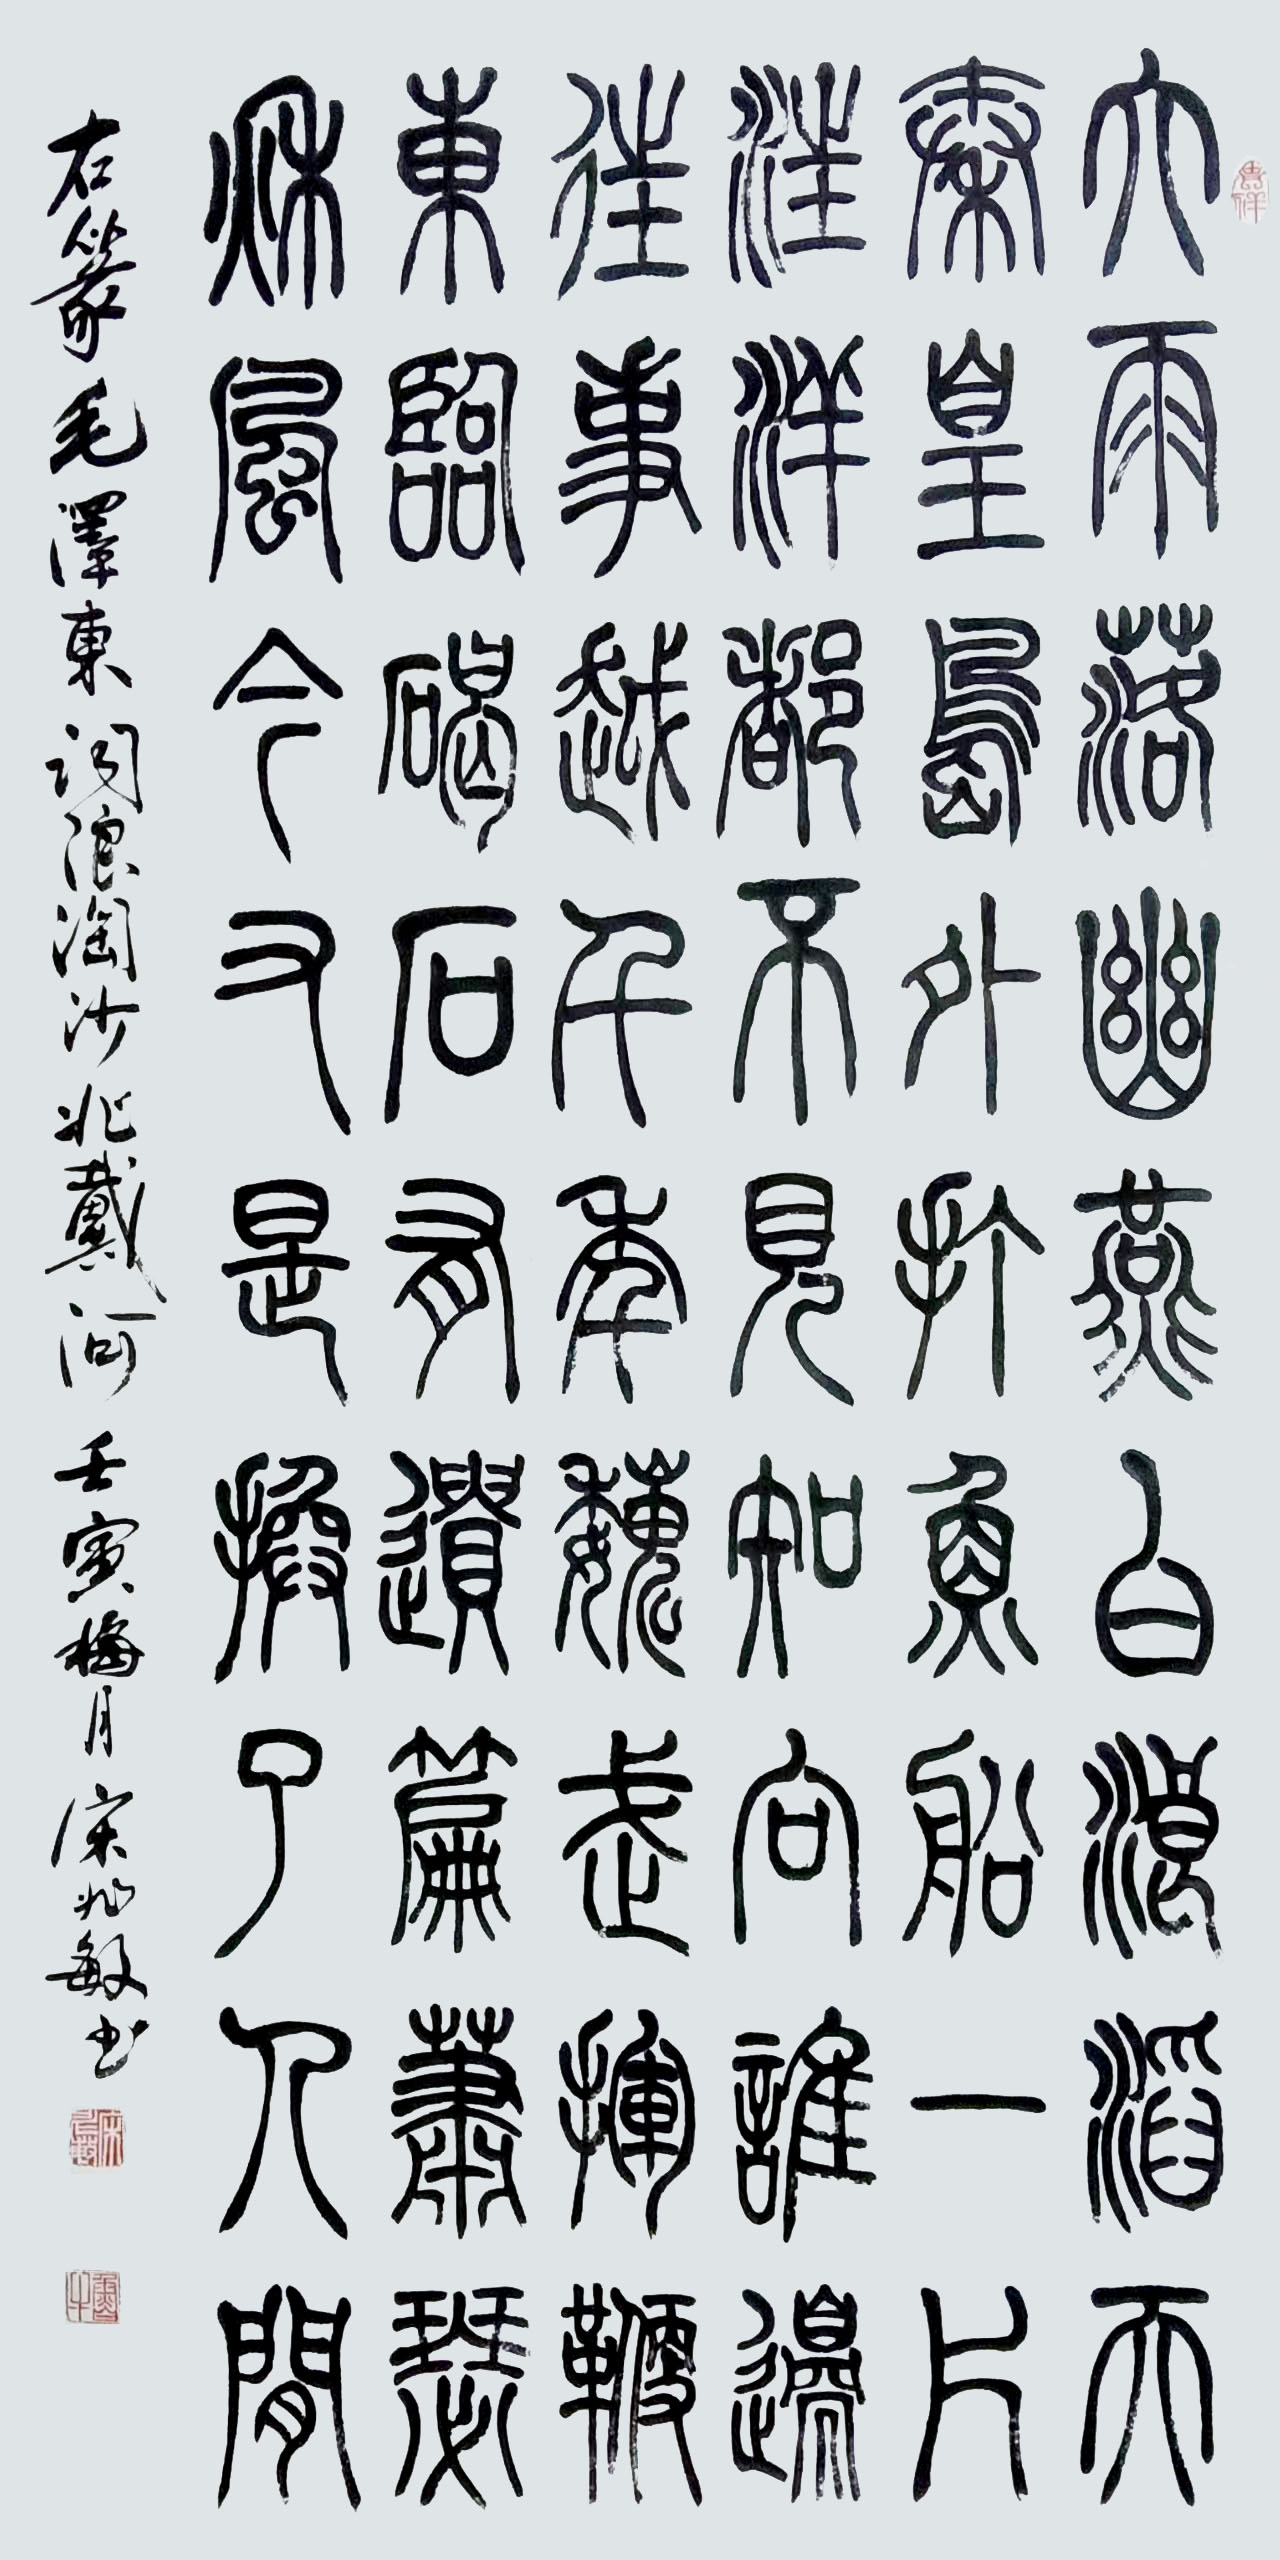 大雨落幽燕白浪滔天
秦皇島外打魚船一片
汪洋都不見知向誰邊
往事越千年魏武揮鞭
東臨碣石有遺篇蕭瑟
秋風今又是換了人間
右篆毛澤東詞浪淘沙北戴河壬寅梅月宋兆敏书